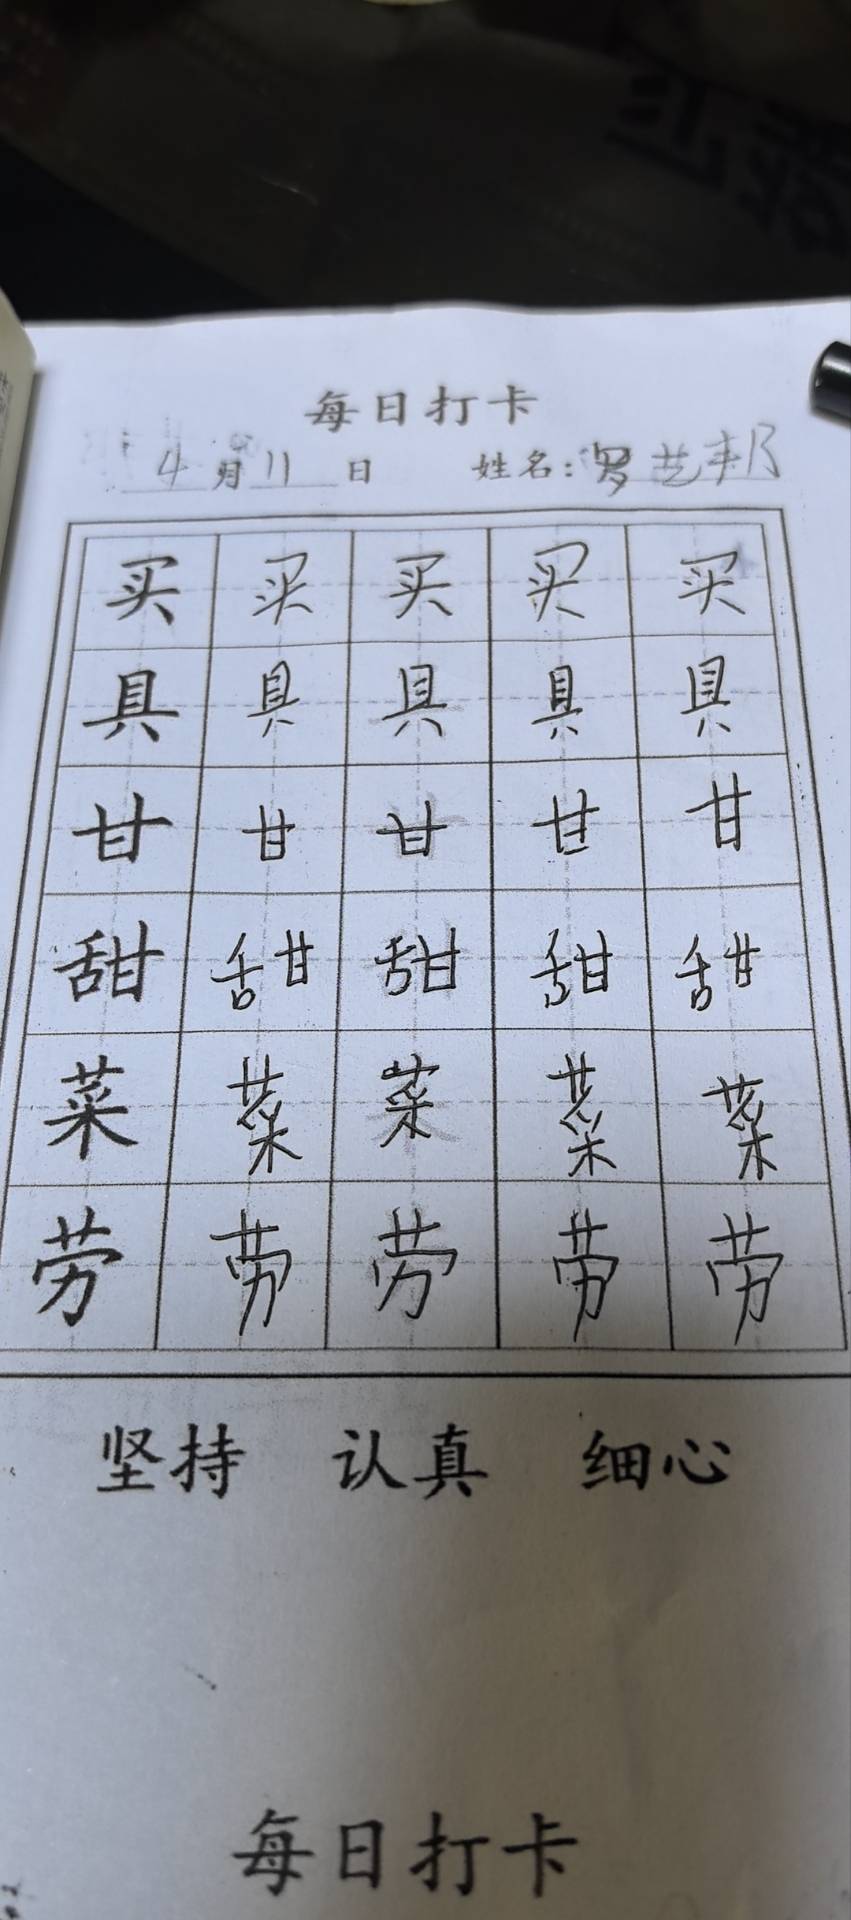 每日打卡
4月11日 姓名：罗艺邦
买 买 买 买 买
具 具 具 具 具
甘 甘 甘 甘 甘
甜 甜 甜 甜 甜
菜 菜 菜 菜 菜
劳 劳 劳 劳 劳
坚持 认真 细心
每日打卡